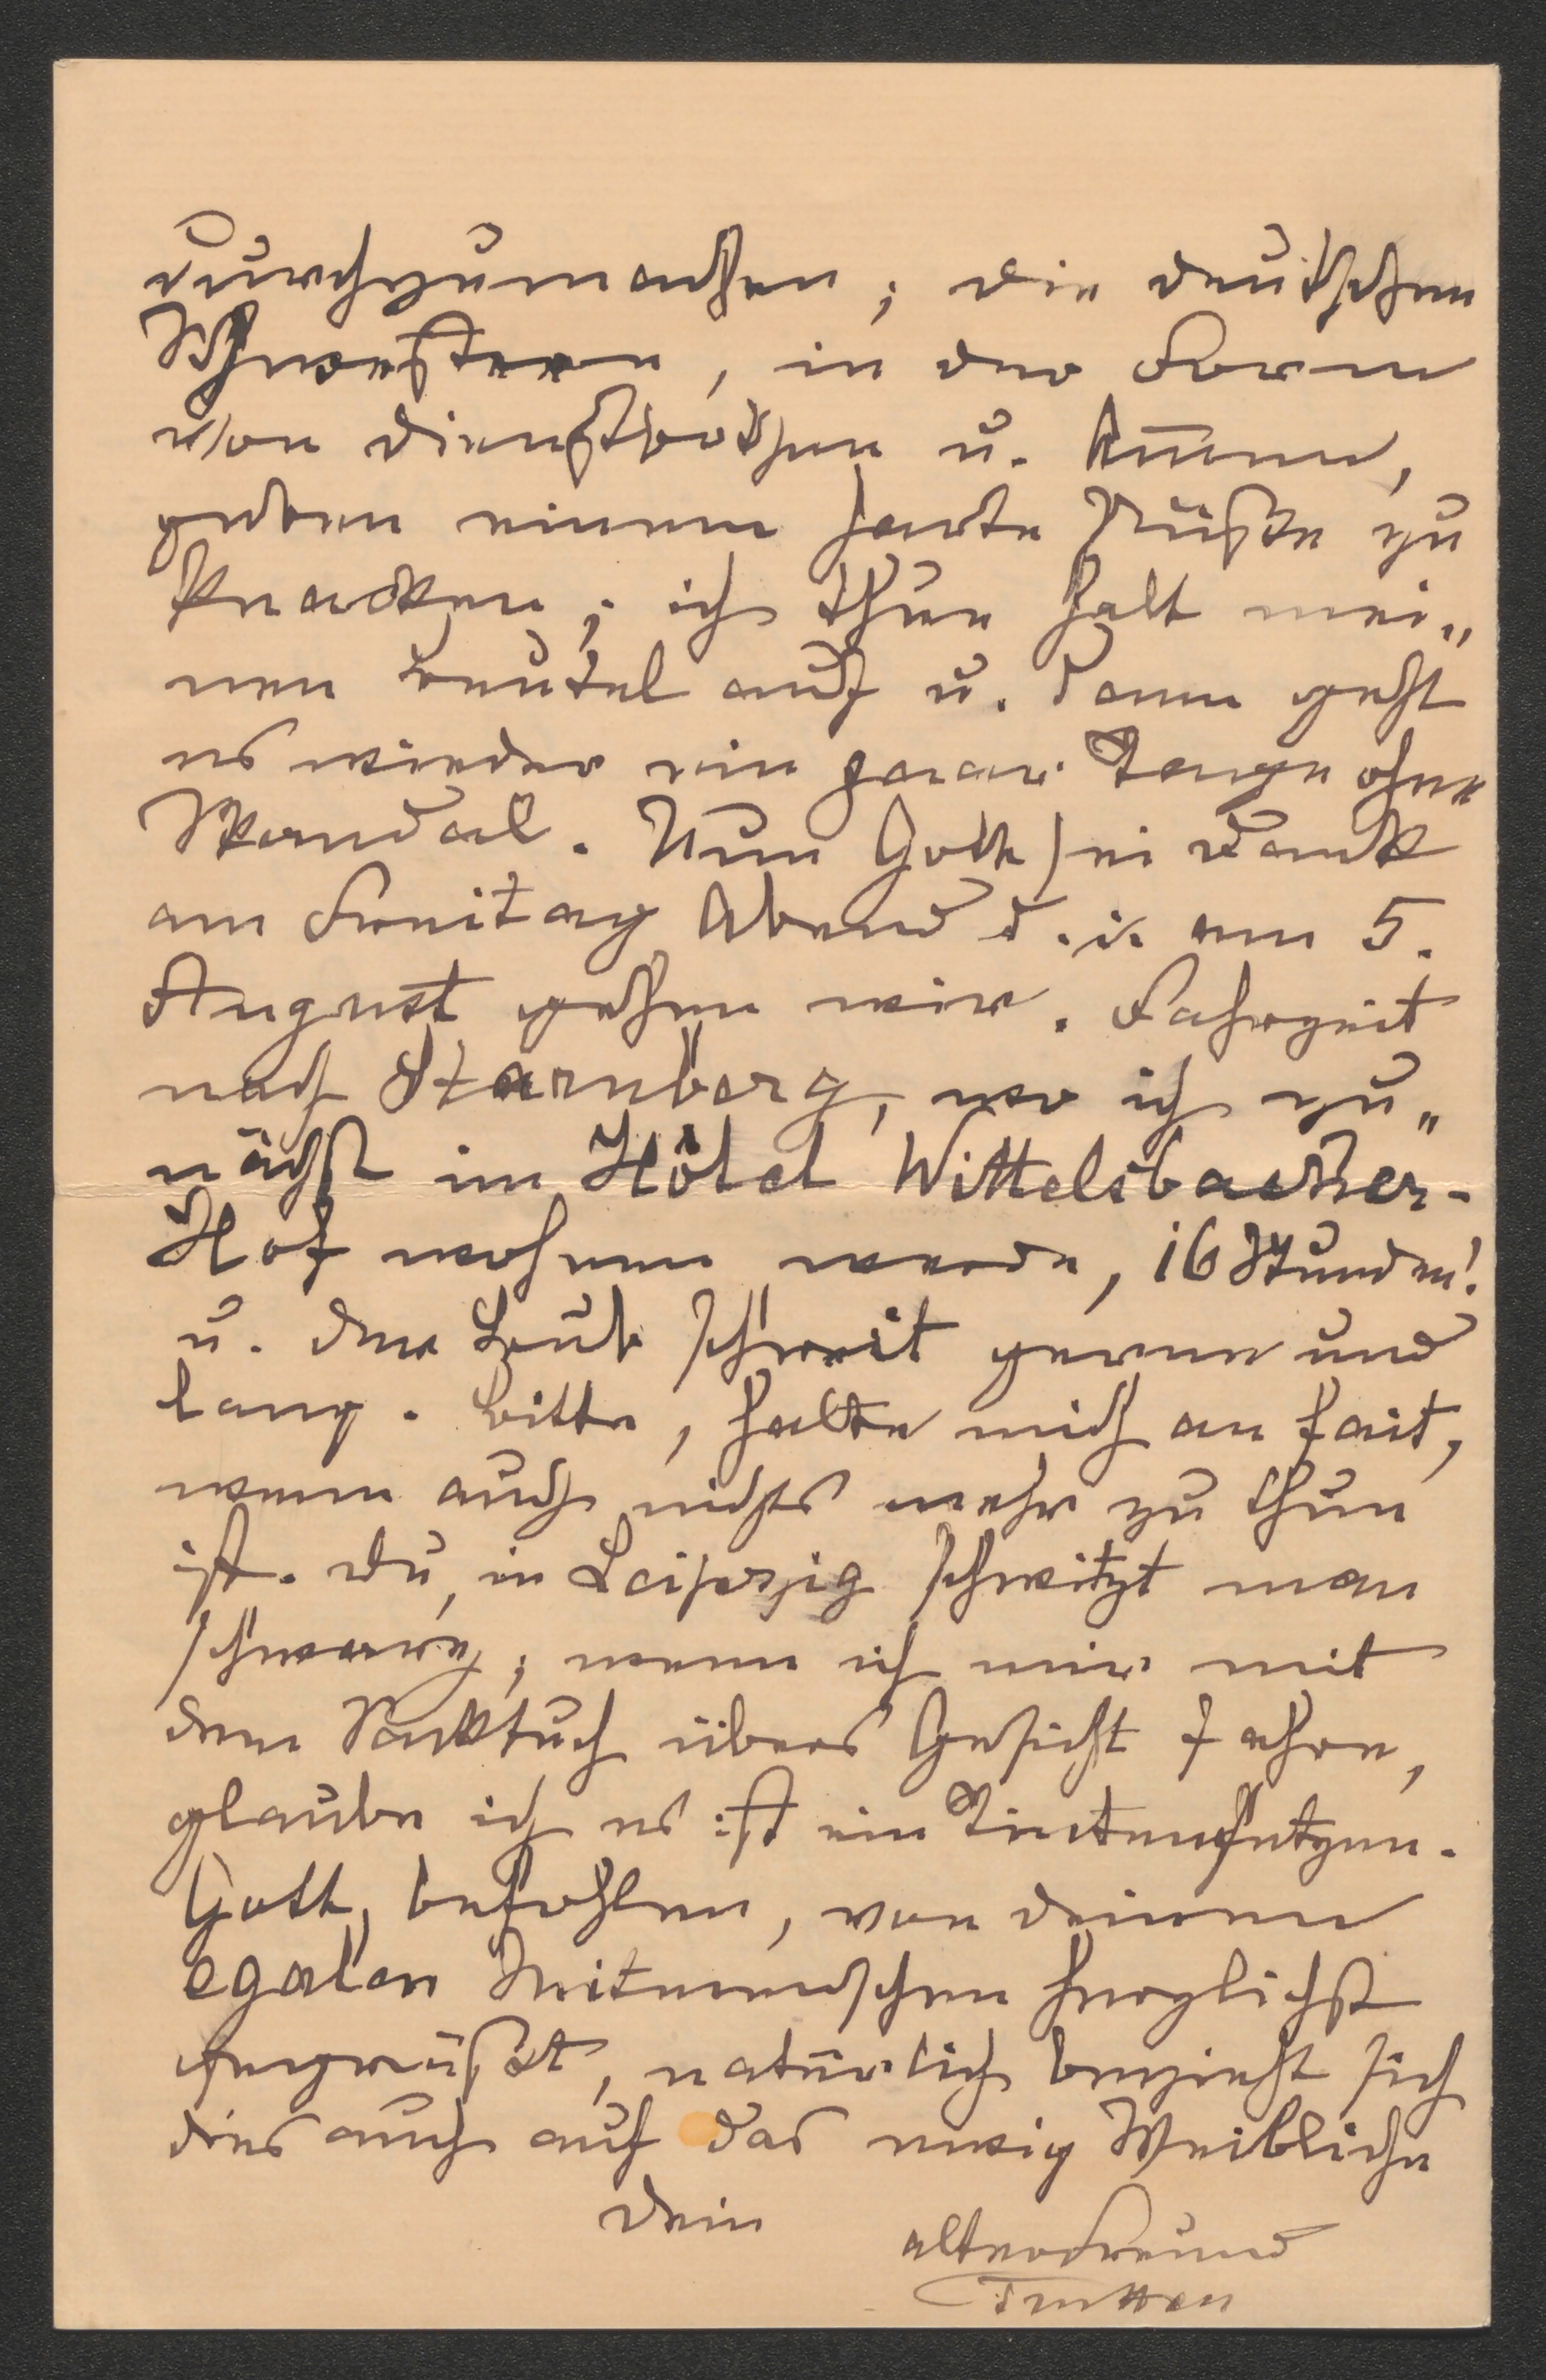 durchzumachen; die deutschen
Schwestern, in der Form
von Dienstbothen u. Ammen,
geben einem harte Nüße zu
knacken; ich thue halt mei„
nen Beutel auf u. dann geht
es wieder ein paar Tage ohne
Skandal. Nun Gott sei Dank
am Freitag Abend d. i. am 5.
August gehen wir. Fahrzeit
nach Starnberg, wo ich zu„
nächst im Hôtel Wittelsbacher-
Hof wohnen werde, 16 Stunden!
u. der Bub schreit gerne und
lang. Bitte, halte mich au fait,
wenn auch nichts mehr zu thun
ist. Du, in Leipzig schwitzt man
schwarz; wenn ich mir mit
dem Sacktuch übers Gesicht fahre,
glaube ich es ist ein Tintenfetzen.
Gott befohlen, von deinem
egalen Mitmenschen herzlichst
gegrüßt, natürlich bezieht sich
dies auch auf das ewig Weibliche
Dein
alter Freund